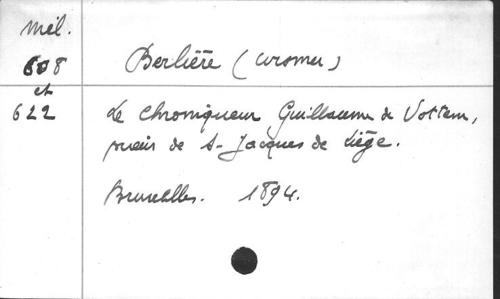 Mél.
608
et
622
Berlière (Ursmer)
Le Chroniqueur Guillaume de Vottem,
prieur de St-Jacques de Liège.
Bruxelles. 1894.